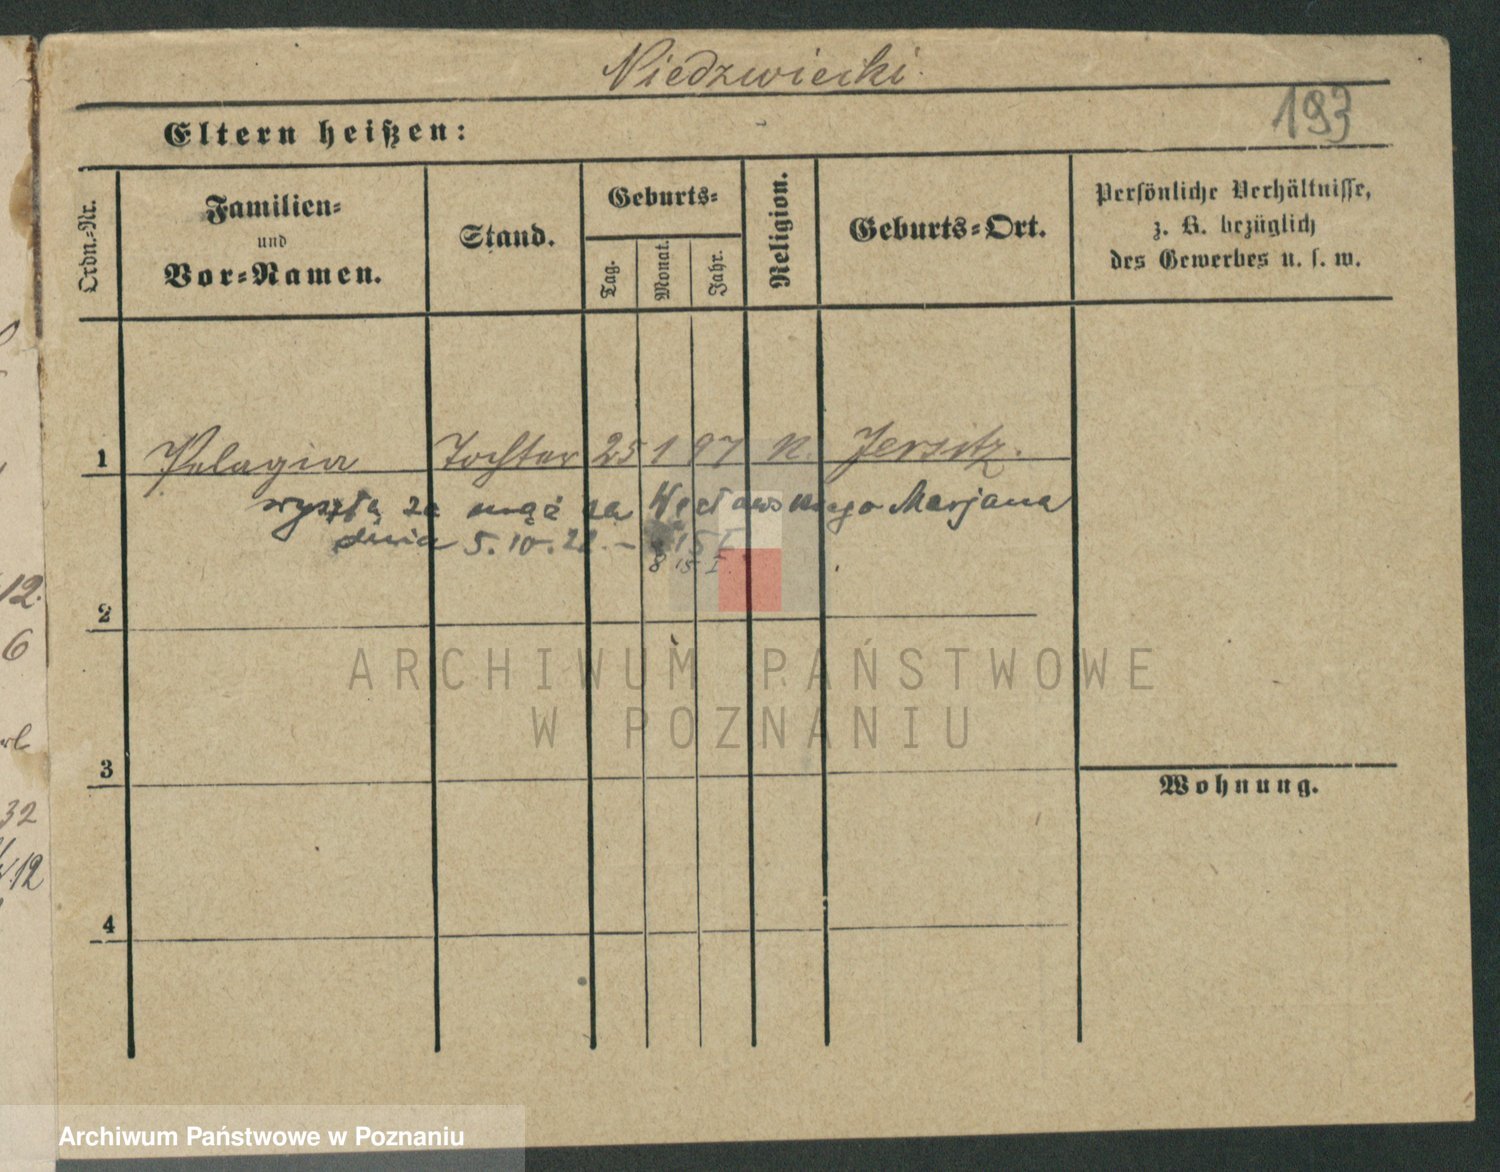 Niedzwiecki.
193
Eltern heißen:
Ordn.-Nr.
Familien-
und
Vor-Namen.
Stand.
Geburts-
Tag.
Monat.
Jahr.
Religion.
Geburts-Ort.
Persönliche Verhältnisse,
z. B. bezüglich
des Gewerbes u. s. w.
1 Pelagia Tochter 25 1 97 K. Jersitz.
wyszła za mąż za Węcławskiego Marjana
dnia 5.10.22. – 15 I
8 15 I.
2
3
4
Wohnung.
12.
6
32
12
ARCHIWUM PAŃSTWOWE
W POZNANIU
Archiwum Państwowe w Poznaniu